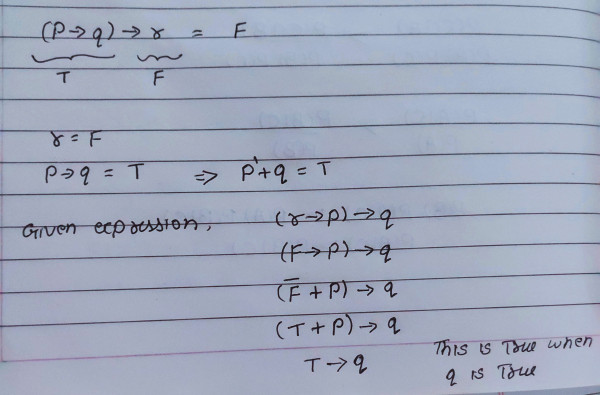 (P→q)→r = F
T F
r = F
P→q = T ⇒ P'+q = T
Given expression, (r→P)→q
(F→P)→q
(F̅+P)→q
(T+P)→q
T→q
This is True when
q is True